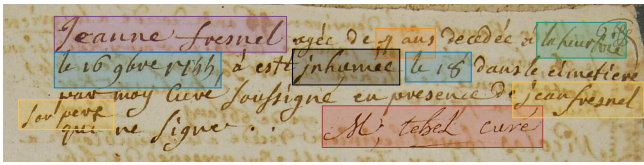 Jeanne fresnel agée de 9 ans decedée a la neuf
le 16 9bre 1744 a esté jnhumée le 18 dans le cimetiere
par moy curé soussigné en presence de jean fresnel
son pere qui ne signe . .
M, tehel curé